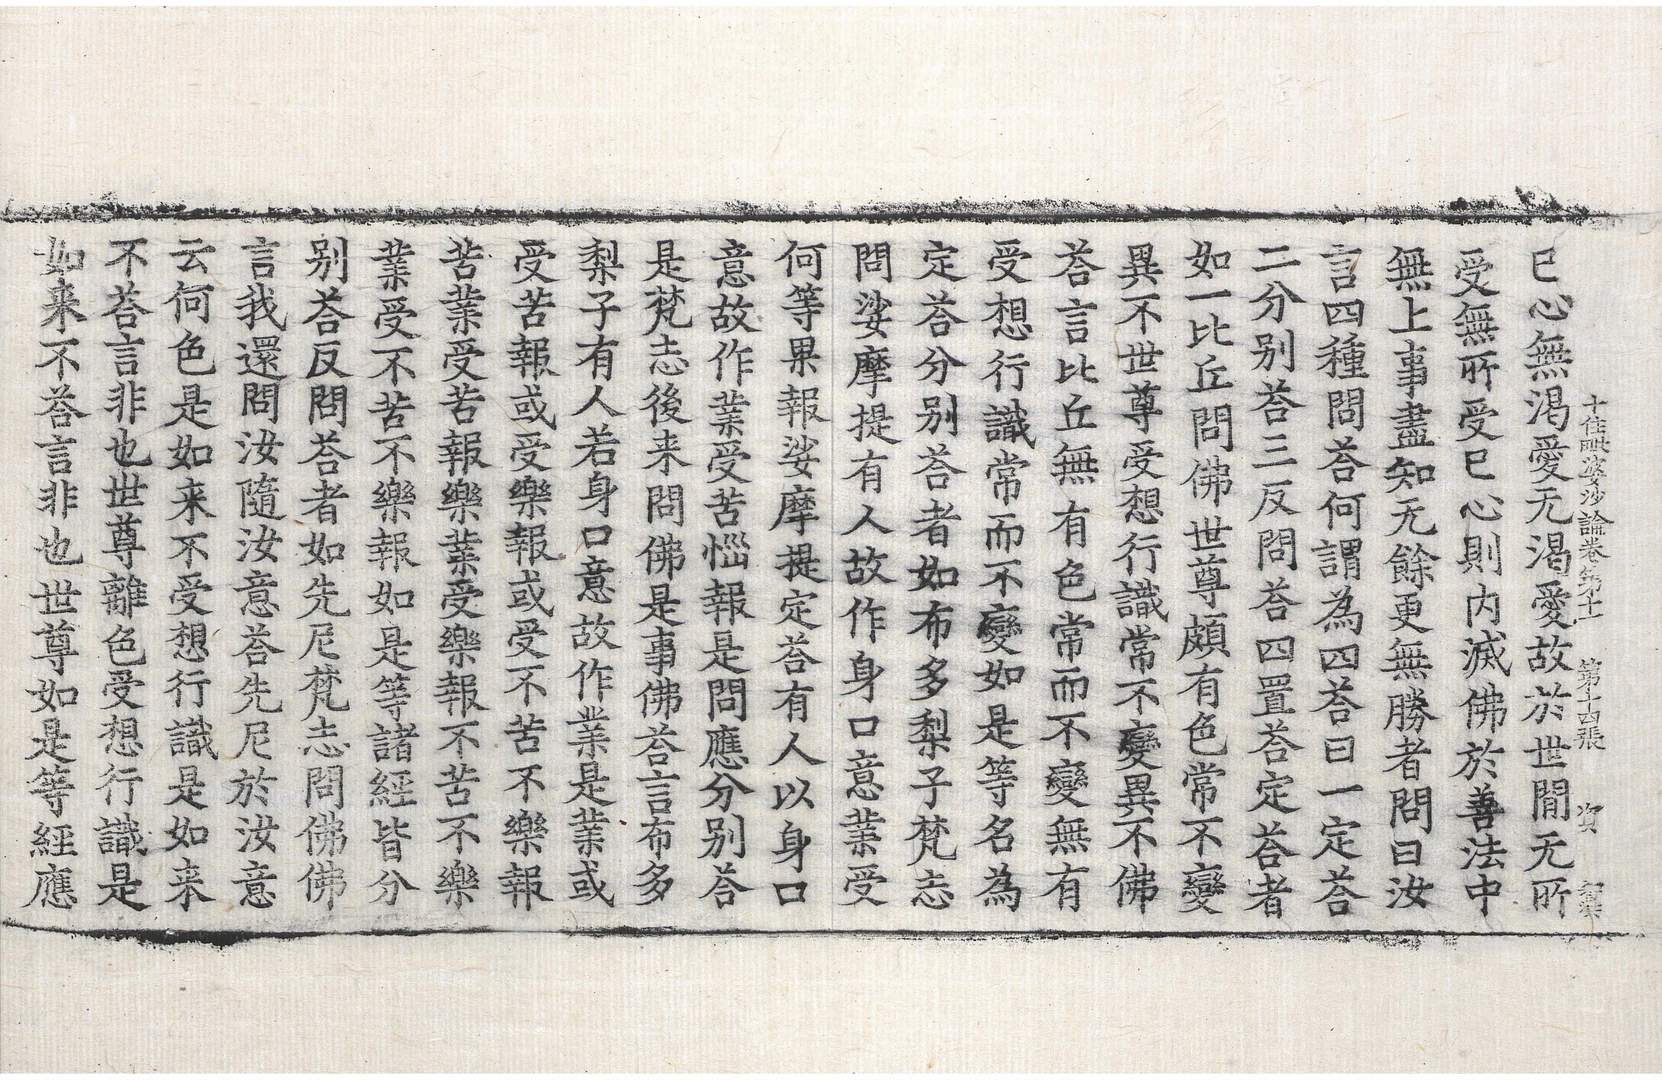 十住毗婆沙論卷第十一 第十四張 資
已心無渴愛无渴愛故於世閒无所
受無所受已心則内滅佛於善法中
無上事盡知无餘更無勝者問曰汝
言四種問荅何謂為四荅曰一定荅
二分别荅三反問荅四置荅定荅者
如一比丘問佛世尊頗有色常不變
異不世尊受想行識常不變異不佛
荅言比丘無有色常而不變無有
受想行識常而不變如是等名為
定荅分别荅者如布多梨子梵志
問娑摩提有人故作身口意業受
何等果報娑摩提定荅有人以身口
意故作業受苦惱報是問應分别荅
是梵志後来問佛是事佛荅言布多
梨子有人若身口意故作業是業或
受苦報或受樂報或受不苦不樂報
苦業受苦報樂業受樂報不苦不樂
業受不苦不樂報如是等諸經皆分
别荅反問荅者如先尼梵志問佛佛
言我還問汝隨汝意荅先尼於汝意
云何色是如来不受想行識是如来
不荅言非也世尊離色受想行識是
如来不荅言非也世尊如是等經應